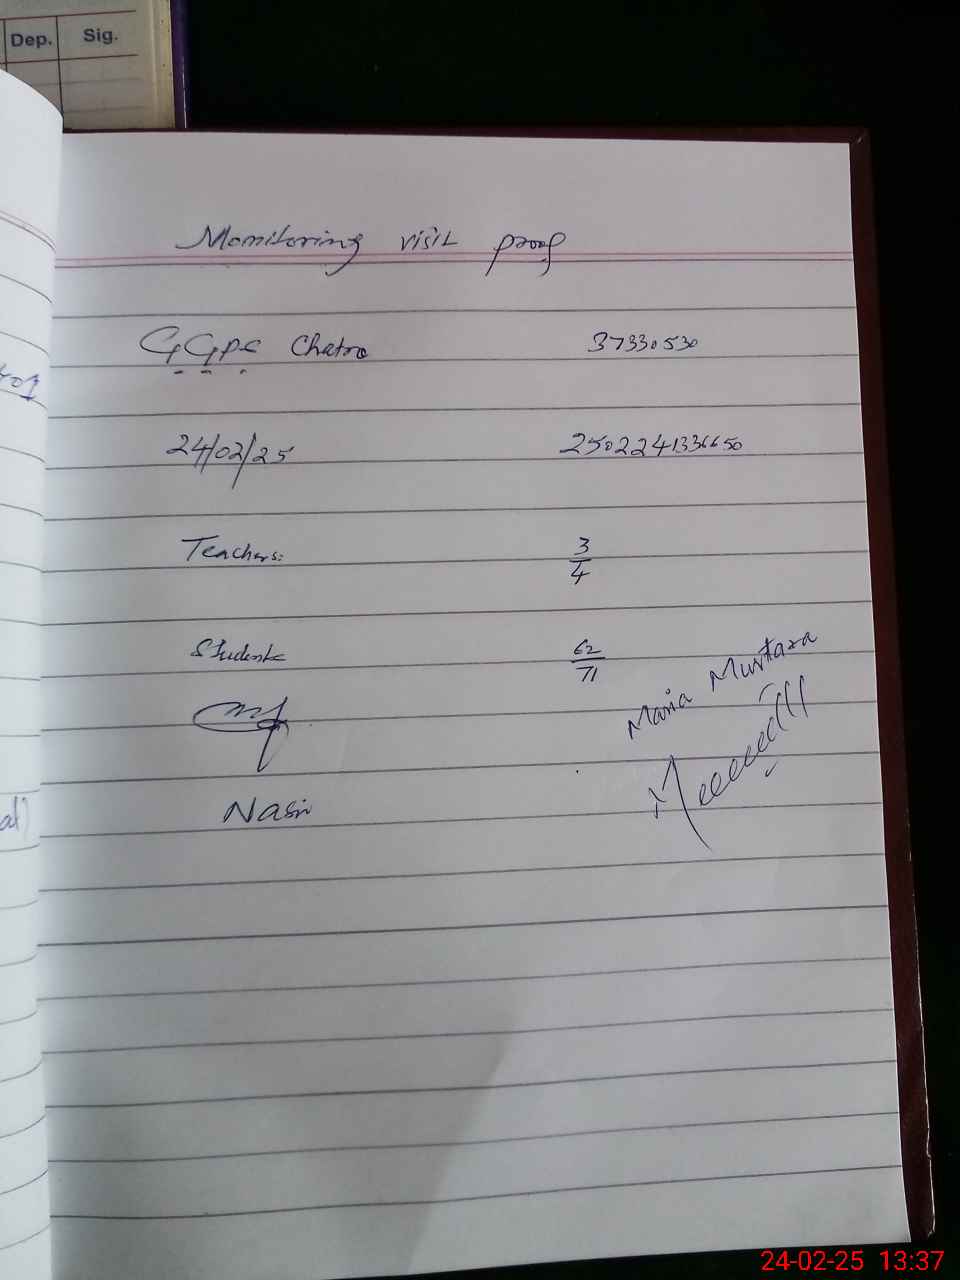 Dep. Sig.
Monitoring visit proof
GGPS Chatro 37330530
24/02/25 2502241336650
Teachers: 3/4
Students 62/71
Maria Murtaza
Nasir
401
al)
24-02-25 13:37